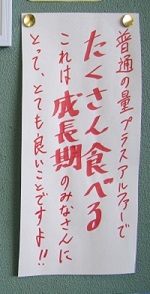 普通の量プラスアルファーで
たくさん食べる
これは成長期のみなさんに
とって、とても良いことですよ!!